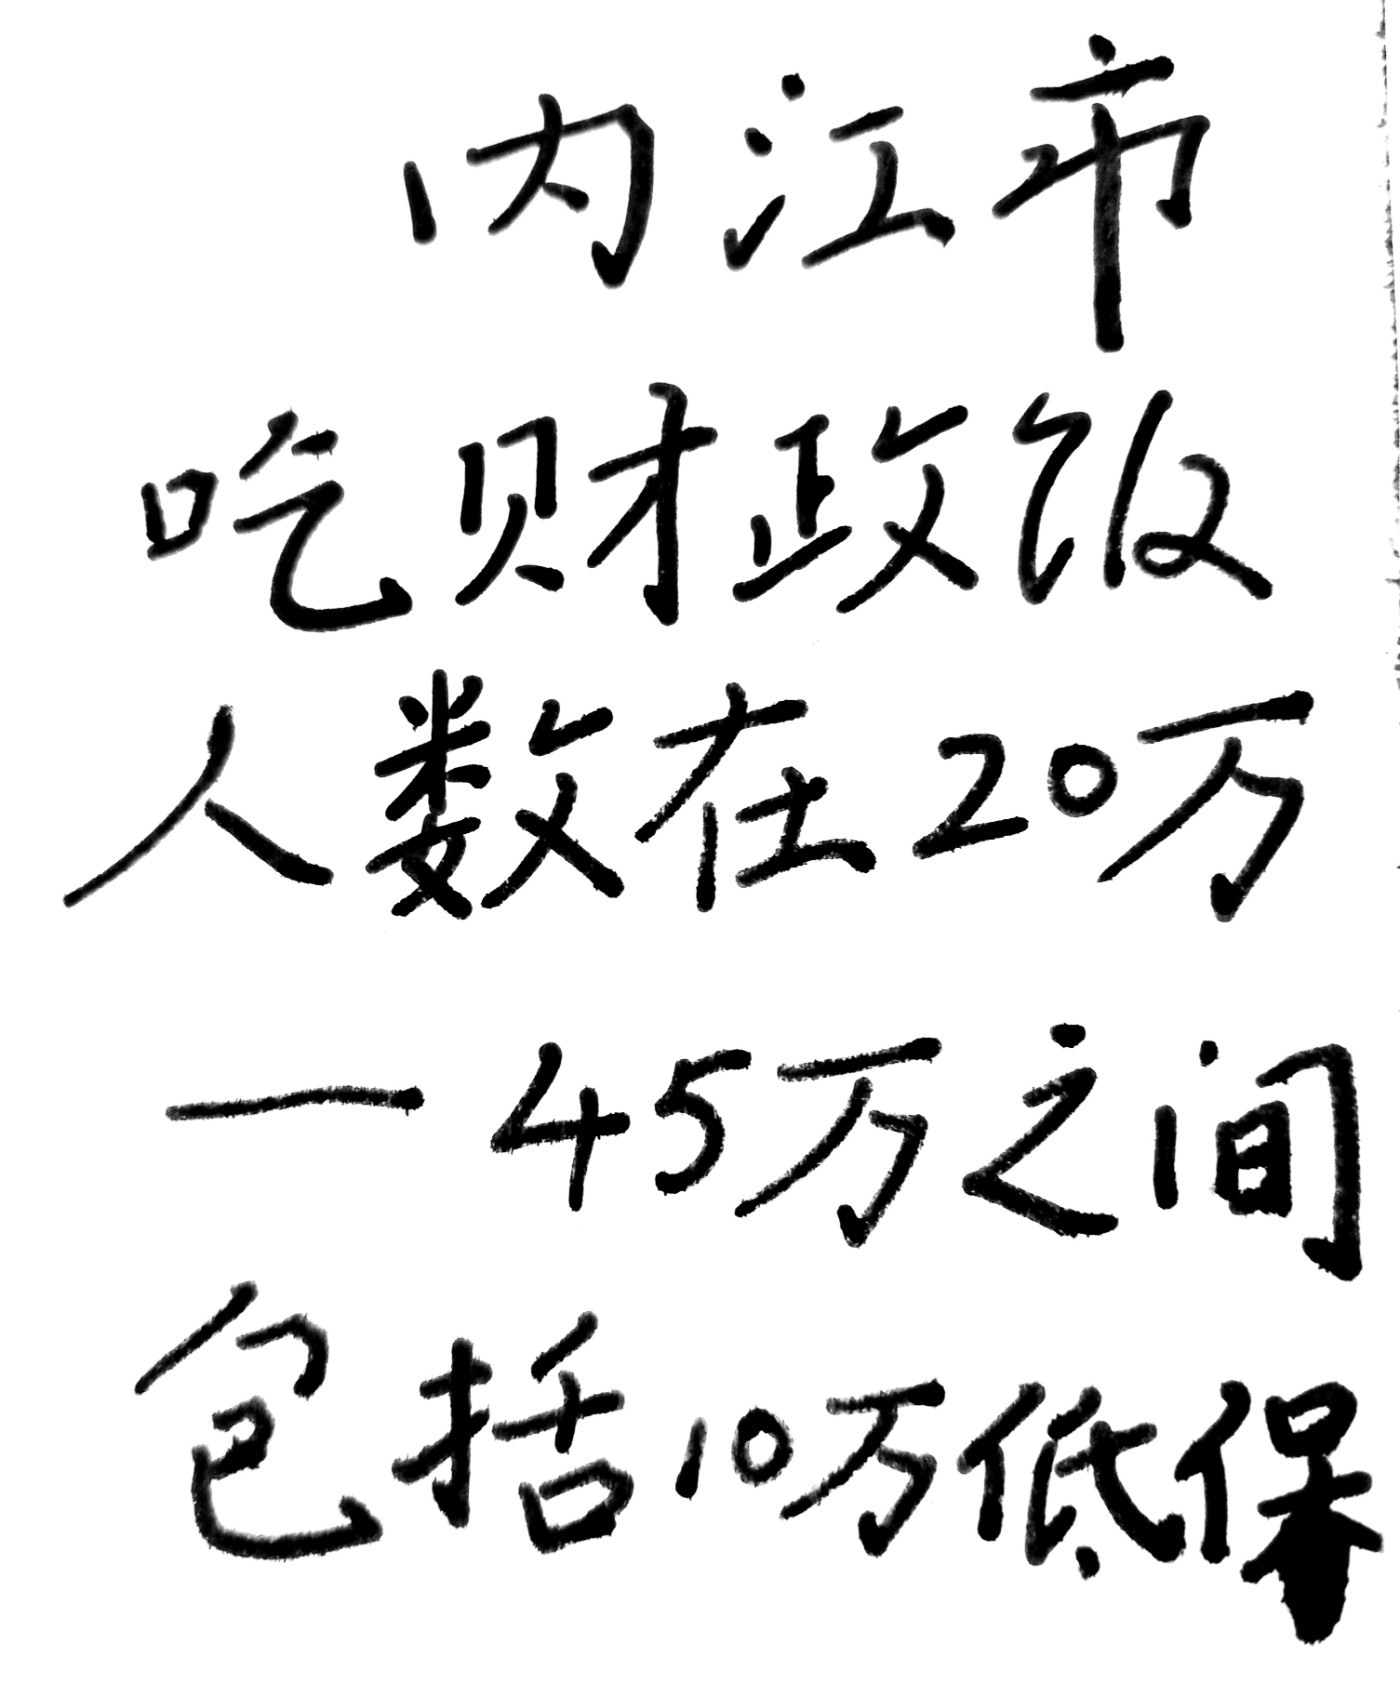 内江市
吃财政饭
人数在20万
一45万之间
包括10万低保